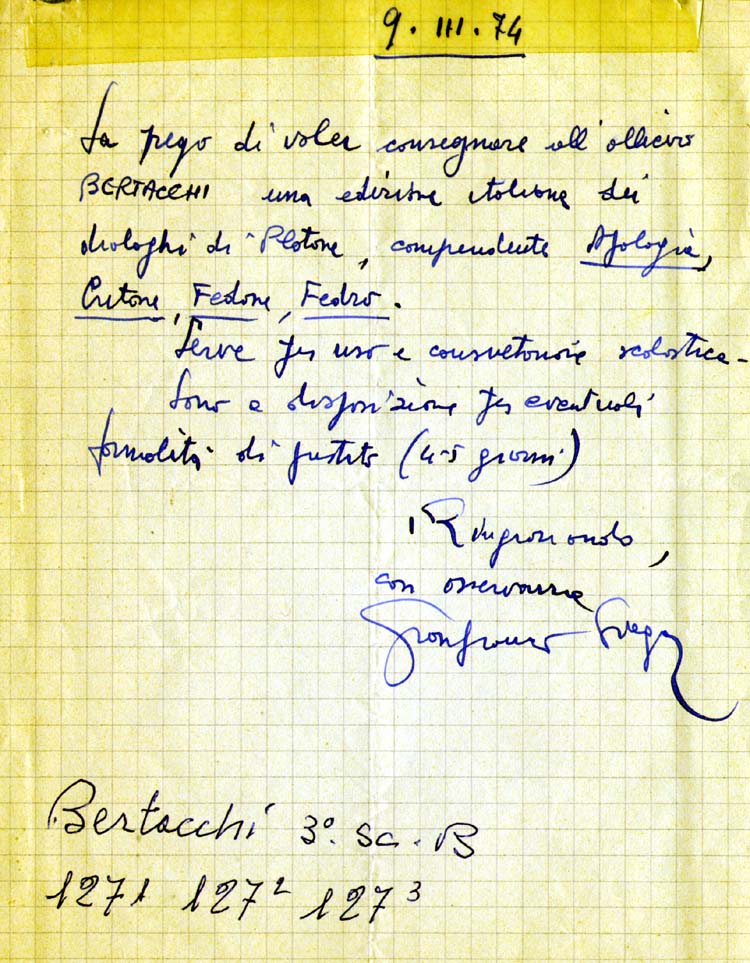 9. III. 74
La prego di voler consegnare all'allievo
BERTACCHI una edizione italiana dei
dialoghi di Platone, comprendente Apologia,
Critone, Fedone, Fedro.
Serve per uso e consultazione scolastica.
Sono a disposizione per eventuali
formalità di prestito (4-5 giorni)
Ringraziando,
con osservanza
Gianfranco
Bertacchi 3°. Sc. B
1271 1272 1273